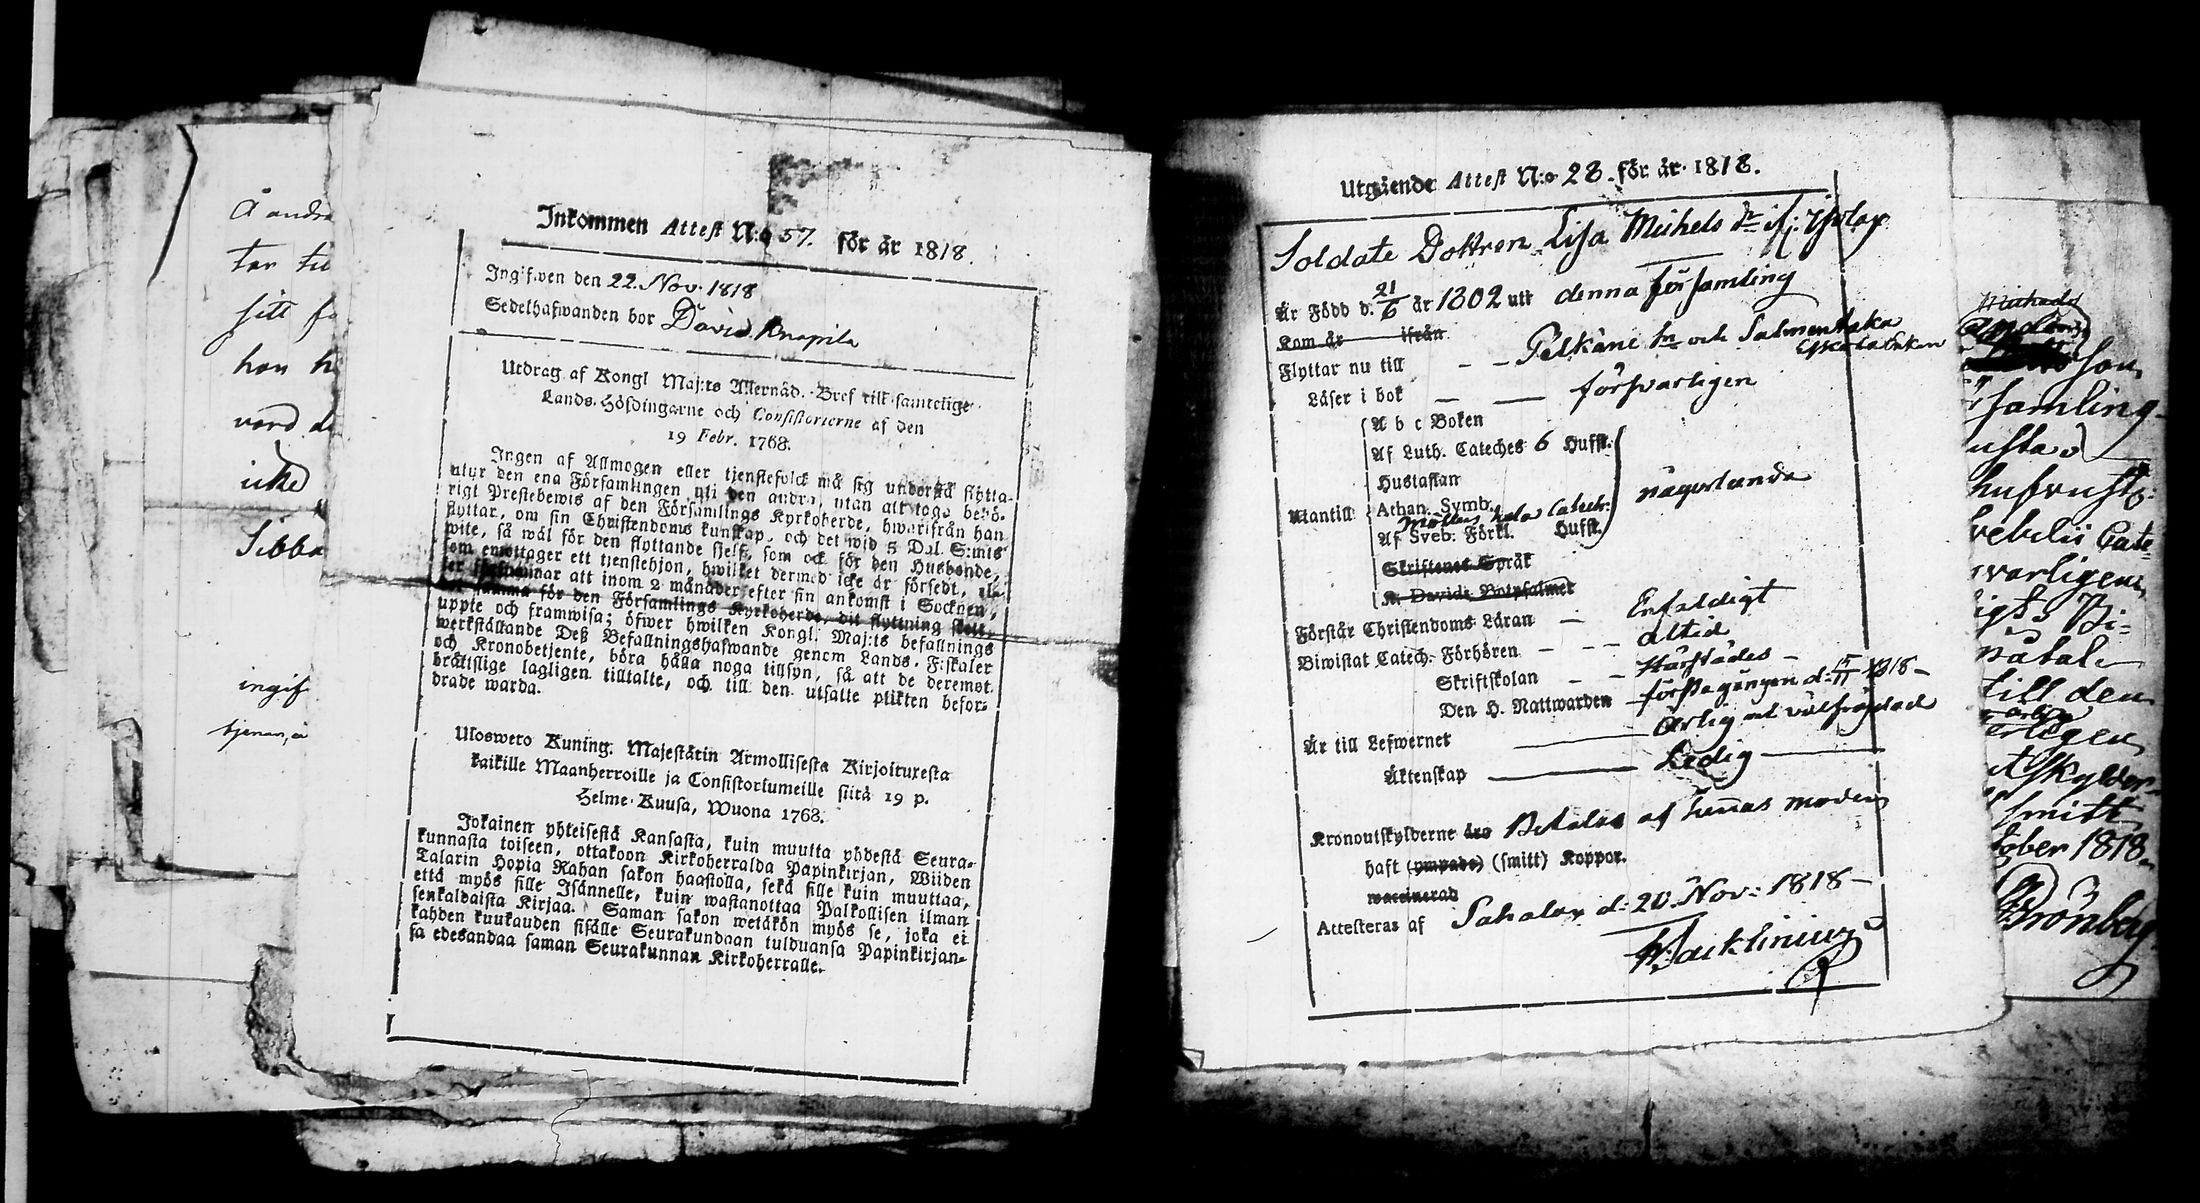 Å andra
sitt
han
ord
icke
Sibba
ingif
tjenar, å
Inkommen Attest N:o 57. för år 1818.
Ingifwen den 22. Nov. 1818
Sedelhafwanden bor David Knapila
Utdrag af Kongl Maj:ts Allernåd. Bref till samtelige
Lands-Höfdingarne och Consistorierne af den
19 Febr. 1768.
Ingen af Allmogen eller tjenstefolck må sig understå flytta
utur den ena Församlingen till den andra, utan att taga behö-
rigt Prestebewis af den Församlings Kyrkoherde, hwarifrån han
flyttar, om sin Christendoms kunskap, och det wid 5 Dal. S:mts
wite, så wäl för den flyttande sjelf, som ock för den Husbonde,
som emottager ett tjenstehjon, hwilket dermed icke är försedt, el-
ler försummar att inom 2 månader efter sin ankomst i Socknen,
det samma för den Församlings Kyrkoherde, dit flyttning skett,
uppte och framwisa; öfwer hwilken Kongl. Maj:ts befallnings
werkställande Deß Befallningshafwande genom Lands-Fiskaler
och Kronobetjente, böra hålla noga tillsyn, så att de deremot
bråtislige lagligen tilltalte, och till den utsatte plikten befor-
drade warda.
Uloswero Kuning. Majestätin Armollisesta Kirjoituxesta
kaikille Maanherroille ja Consistoriumeille siitä 19 p.
Helme-Kuusa, Wuona 1768.
Jokainen yhteisestä Kansasta, kuin muutta yhdestä Seura-
kunnasta toiseen, ottakoon Kirkoherralda Papinkirjan, Wiiden
Talarin Hopia Rahan sakon haastolla, sekä sille kuin muuttaa,
että myös sille Isännelle, kuin wastanottaa Palkollisen ilman
senkaldaista Kirjaa. Saman sakon wetäkön myös se, joka ei
kahden kuukauden sisälle Seurakundaan tulduansa Papinkirjan-
sa edesandaa saman Seurakunnan Kirkoherralle.
Utgående Attest N:o 28. för år 1818.
Soldate Dottren Lisa Michels dr
Är Född d. 21/6 år 1802 utt denna församling
Kom år ifrån
Flyttar nu till — — Pelkäne sn och Salmentaka
Läser i bok — — försvarligen
A b c Boken
Af Luth. Cateches 6 Hufst.
Hustaflan
Utantill Athan. Symb. någorlunda
Möllers hela Catech:
Af Sveb. Förkl. Hufst.
Skriftenes Språk
K. Davids Botpsalmer
Förstår Christendoms Läran — Enfaldigt
Biwistat Catech. Förhören — — altid
Skriftskolan — — härstädes —
Den H. Nattwarden första gången d: 15/11 1818 —
Är till Lefwernet — ärlig och välfrägdad
Äktenskap — Ledig —
Kronoutskylderne äro Betalas af hennes moder
haft (ympade) (smitt) Koppor.
waccinerad
Attesteras af Sahalax d: 20 Nov: 1818 —
Michels
son
församling
Gustav
hufvudst:
vebelii Cate-
varligen
till den
ärlig
utskylder
smitt
tober 1818
Grönberg